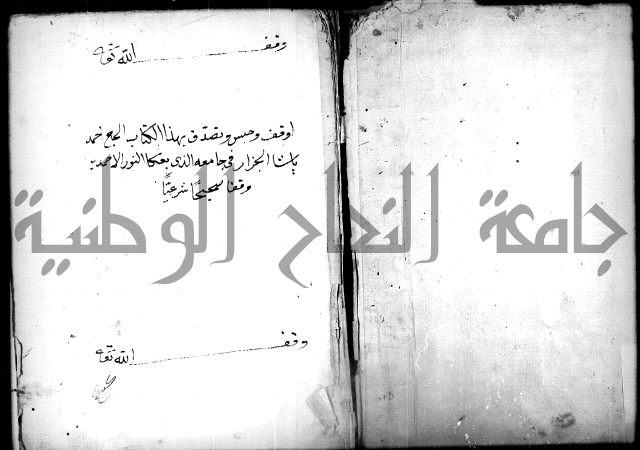 وقف الله تعالى
اوقف وحبس وتصدق بهذا الكتاب الحج احمد
باشا الجزار في جامعه الذي بعكا النور الاحمديه
وقفا صحيحًا شرعيًا
جامعة النجاح الوطنية
وقف الله تعالى